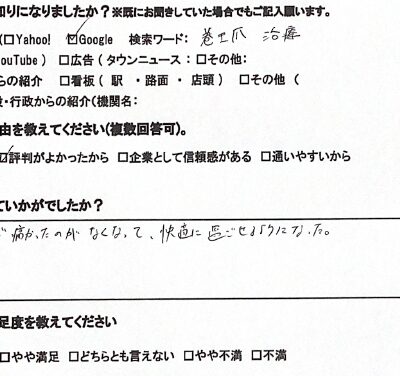 知りになりましたか？※既にお聞きしていた場合でもご記入願います。
(□Yahoo! ☑Google 検索ワード: 巻き爪 治療
YouTube ) □広告 ( タウンニュース : □その他:
らの紹介 □看板 ( 駅 ・路面 ・ 店頭 ) □その他 (
・行政からの紹介(機関名:
由を教えてください(複数回答可)。
☑評判がよかったから □企業として信頼感がある □通いやすいから
ていかがでしたか？
痛かったのが なくなって、快適に 過ごせるようになった。
足度を教えてください
□やや満足 □どちらとも言えない □やや不満 □不満